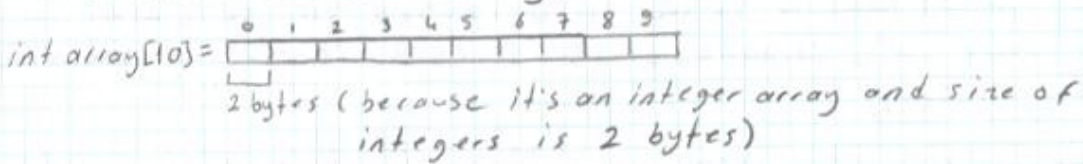 0 1 2 3 4 5 6 7 8 9
int array[10]=
2 bytes (because it's an integer array and size of
integers is 2 bytes)